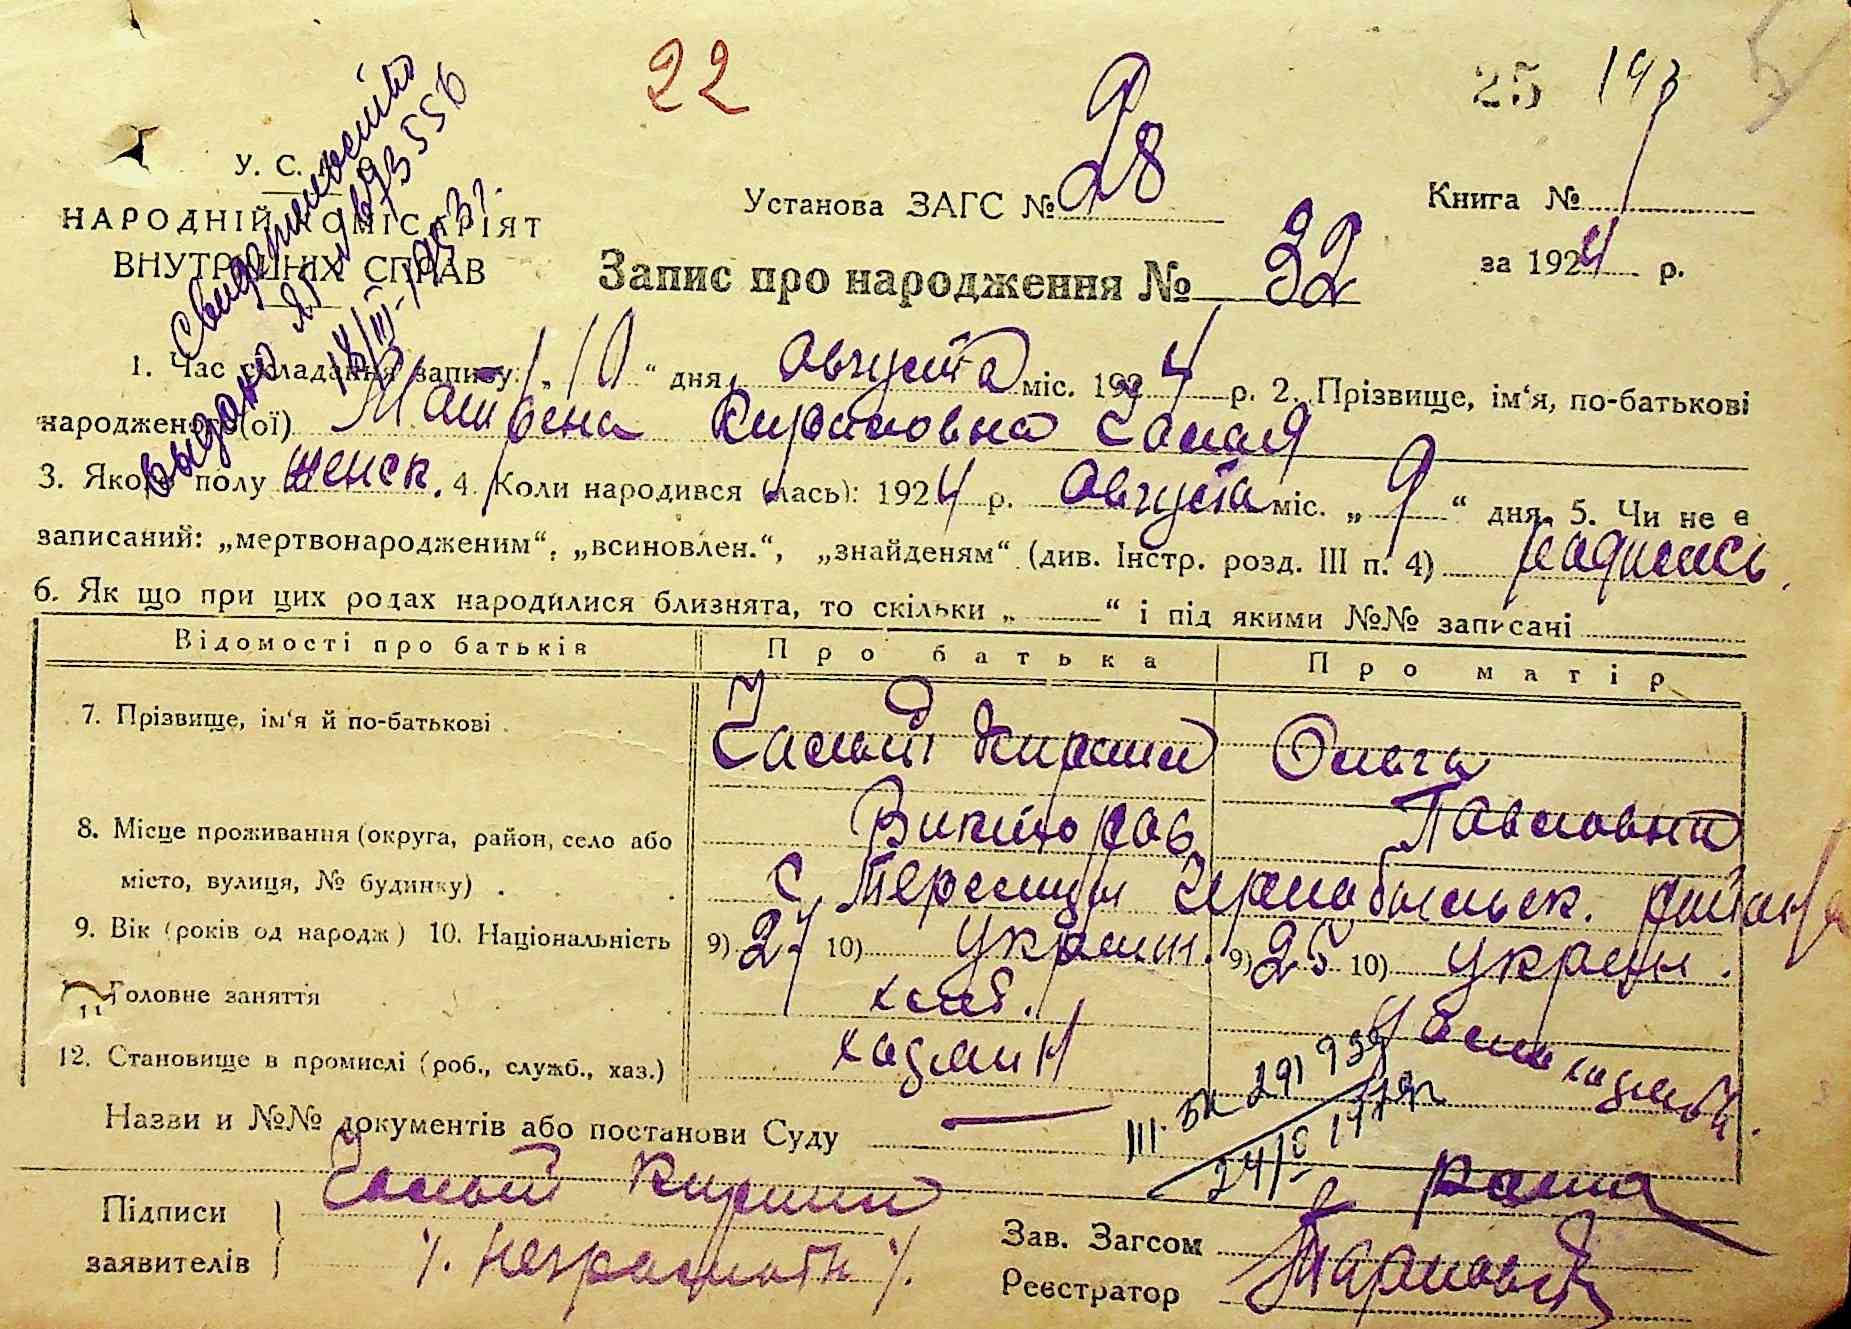 22
25 193
У. С. Р. Р.
НАРОДНІЙ КОМІСАРІЯТ
ВНУТРІШНІХ СПРАВ
Установа ЗАГС № 28
Книга №
за 1924 р.
Запис про народження № 32
Свидетельство
выдано ЯГ № 693556
1. Час складання запису: „10“ дня августа міс. 1924 р. 2. Прізвище, ім‘я, по-батькові
народженого(ої) Матрена Кириловна
3. Якого полу женск. 4. Коли народився (лась): 1924 р. августа міс. „9“ дня. 5. Чи не є
записаний: „мертвонародженим“, „всиновлен.“, „знайденям“ (див. Інстр. розд. III п. 4) родилась
6. Як що при цих родах народилися близнята, то скільки „ “ і під якими №№ записані
Відомості про батьків Про батька Про матір
7. Прізвище, ім‘я й по-батькові Кирилл Ольга
Викторов Павловна
8. Місце проживання (округа, район, село або
місто, вулиця, № будинку) с Теремцы Чернобыльск. района
9. Вік (років од народж) 10. Національність 9) 27 10) украин. 9) 25 10) украин.
11. Головне заняття хлеб.
12. Становище в промислі (роб., служб., хаз.) хазяин
III. БК 291939
Назви и №№ документів або постанови Суду
Підписи
заявителів
Кирилл
/. неграмотн /.
Зав. Загсом
Реєстратор